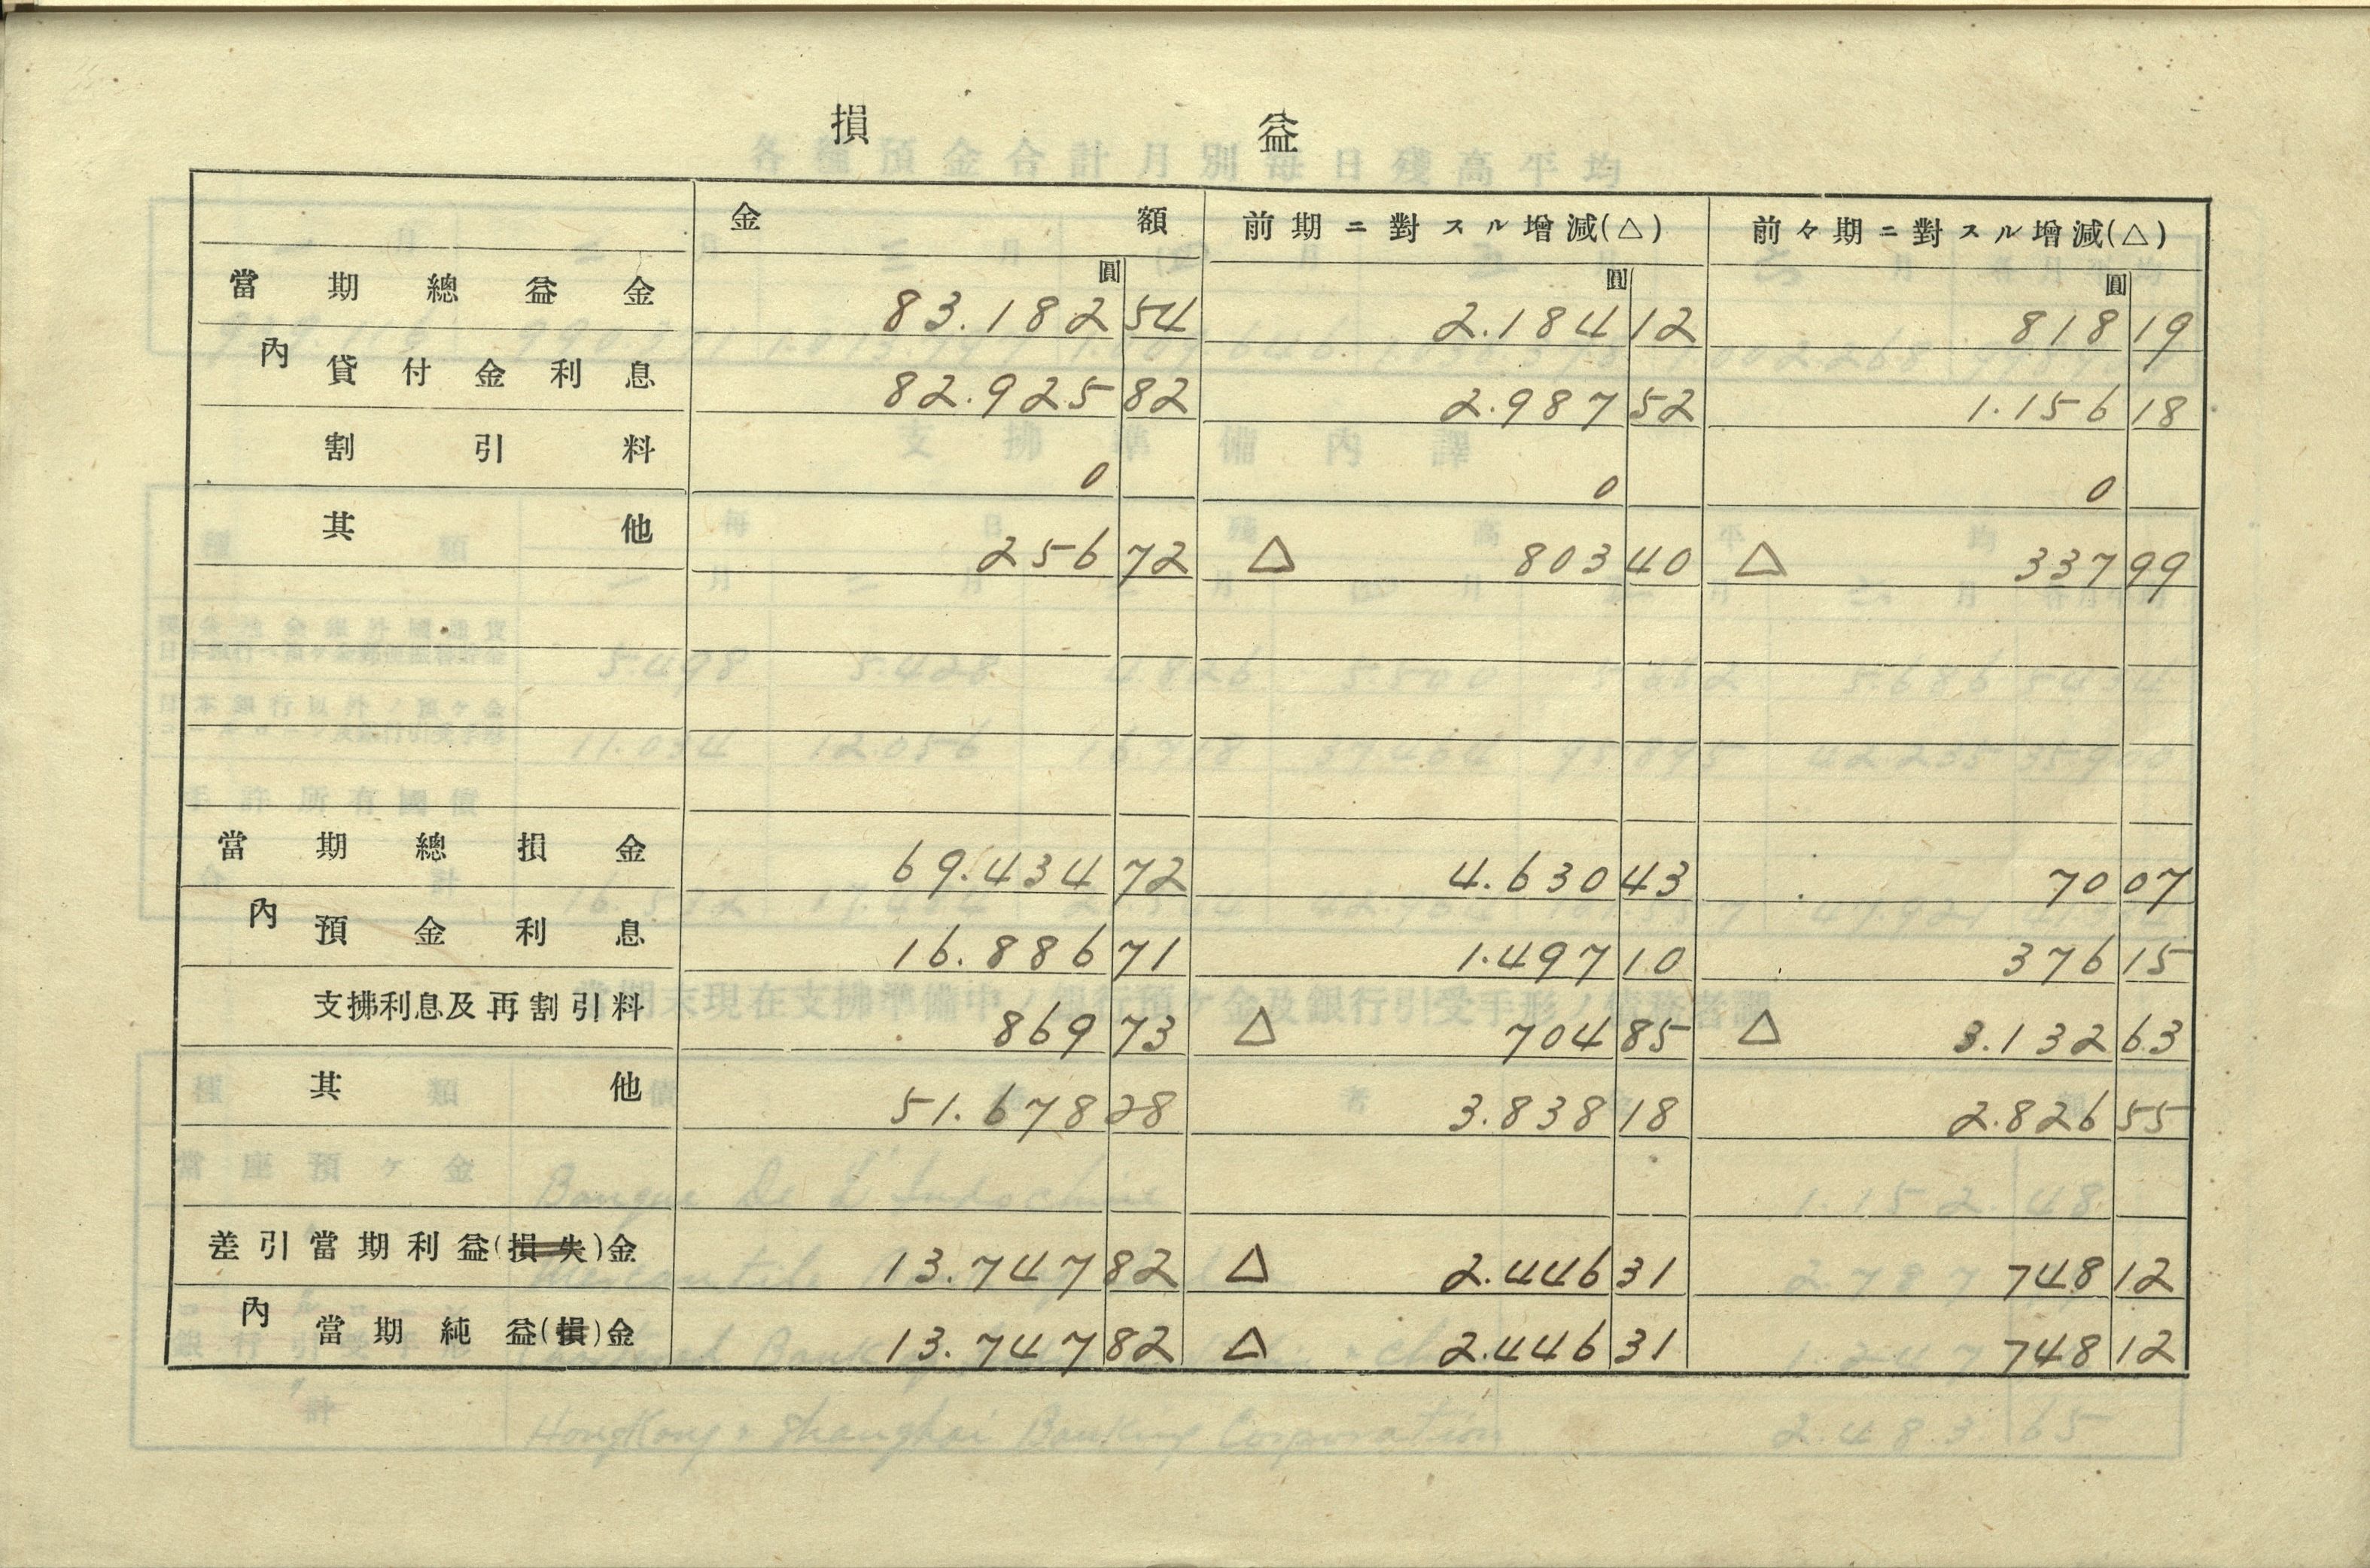 損益
金額 前期ニ對スル增減(△) 前々期ニ對スル增減(△)
圓 圓 圓
當期總益金 83.182 54 2.184 12 818 19
內 貸付金利息 82.925 82 2.987 52 1.156 18
割引料 0 0 0
其他 256 72 △ 803 40 △ 337 99
當期總損金 69.434 72 4.630 43 70 07
內 預金利息 16.886 71 1.497 10 376 15
支拂利息及再割引料 869 73 △ 704 85 △ 3.132 63
其他 51.678 28 3.838 18 2.826 55
差引當期利益(損失)金 13.747 82 △ 2.446 31 748 12
內 當期純益(損)金 13.747 82 △ 2.446 31 748 12